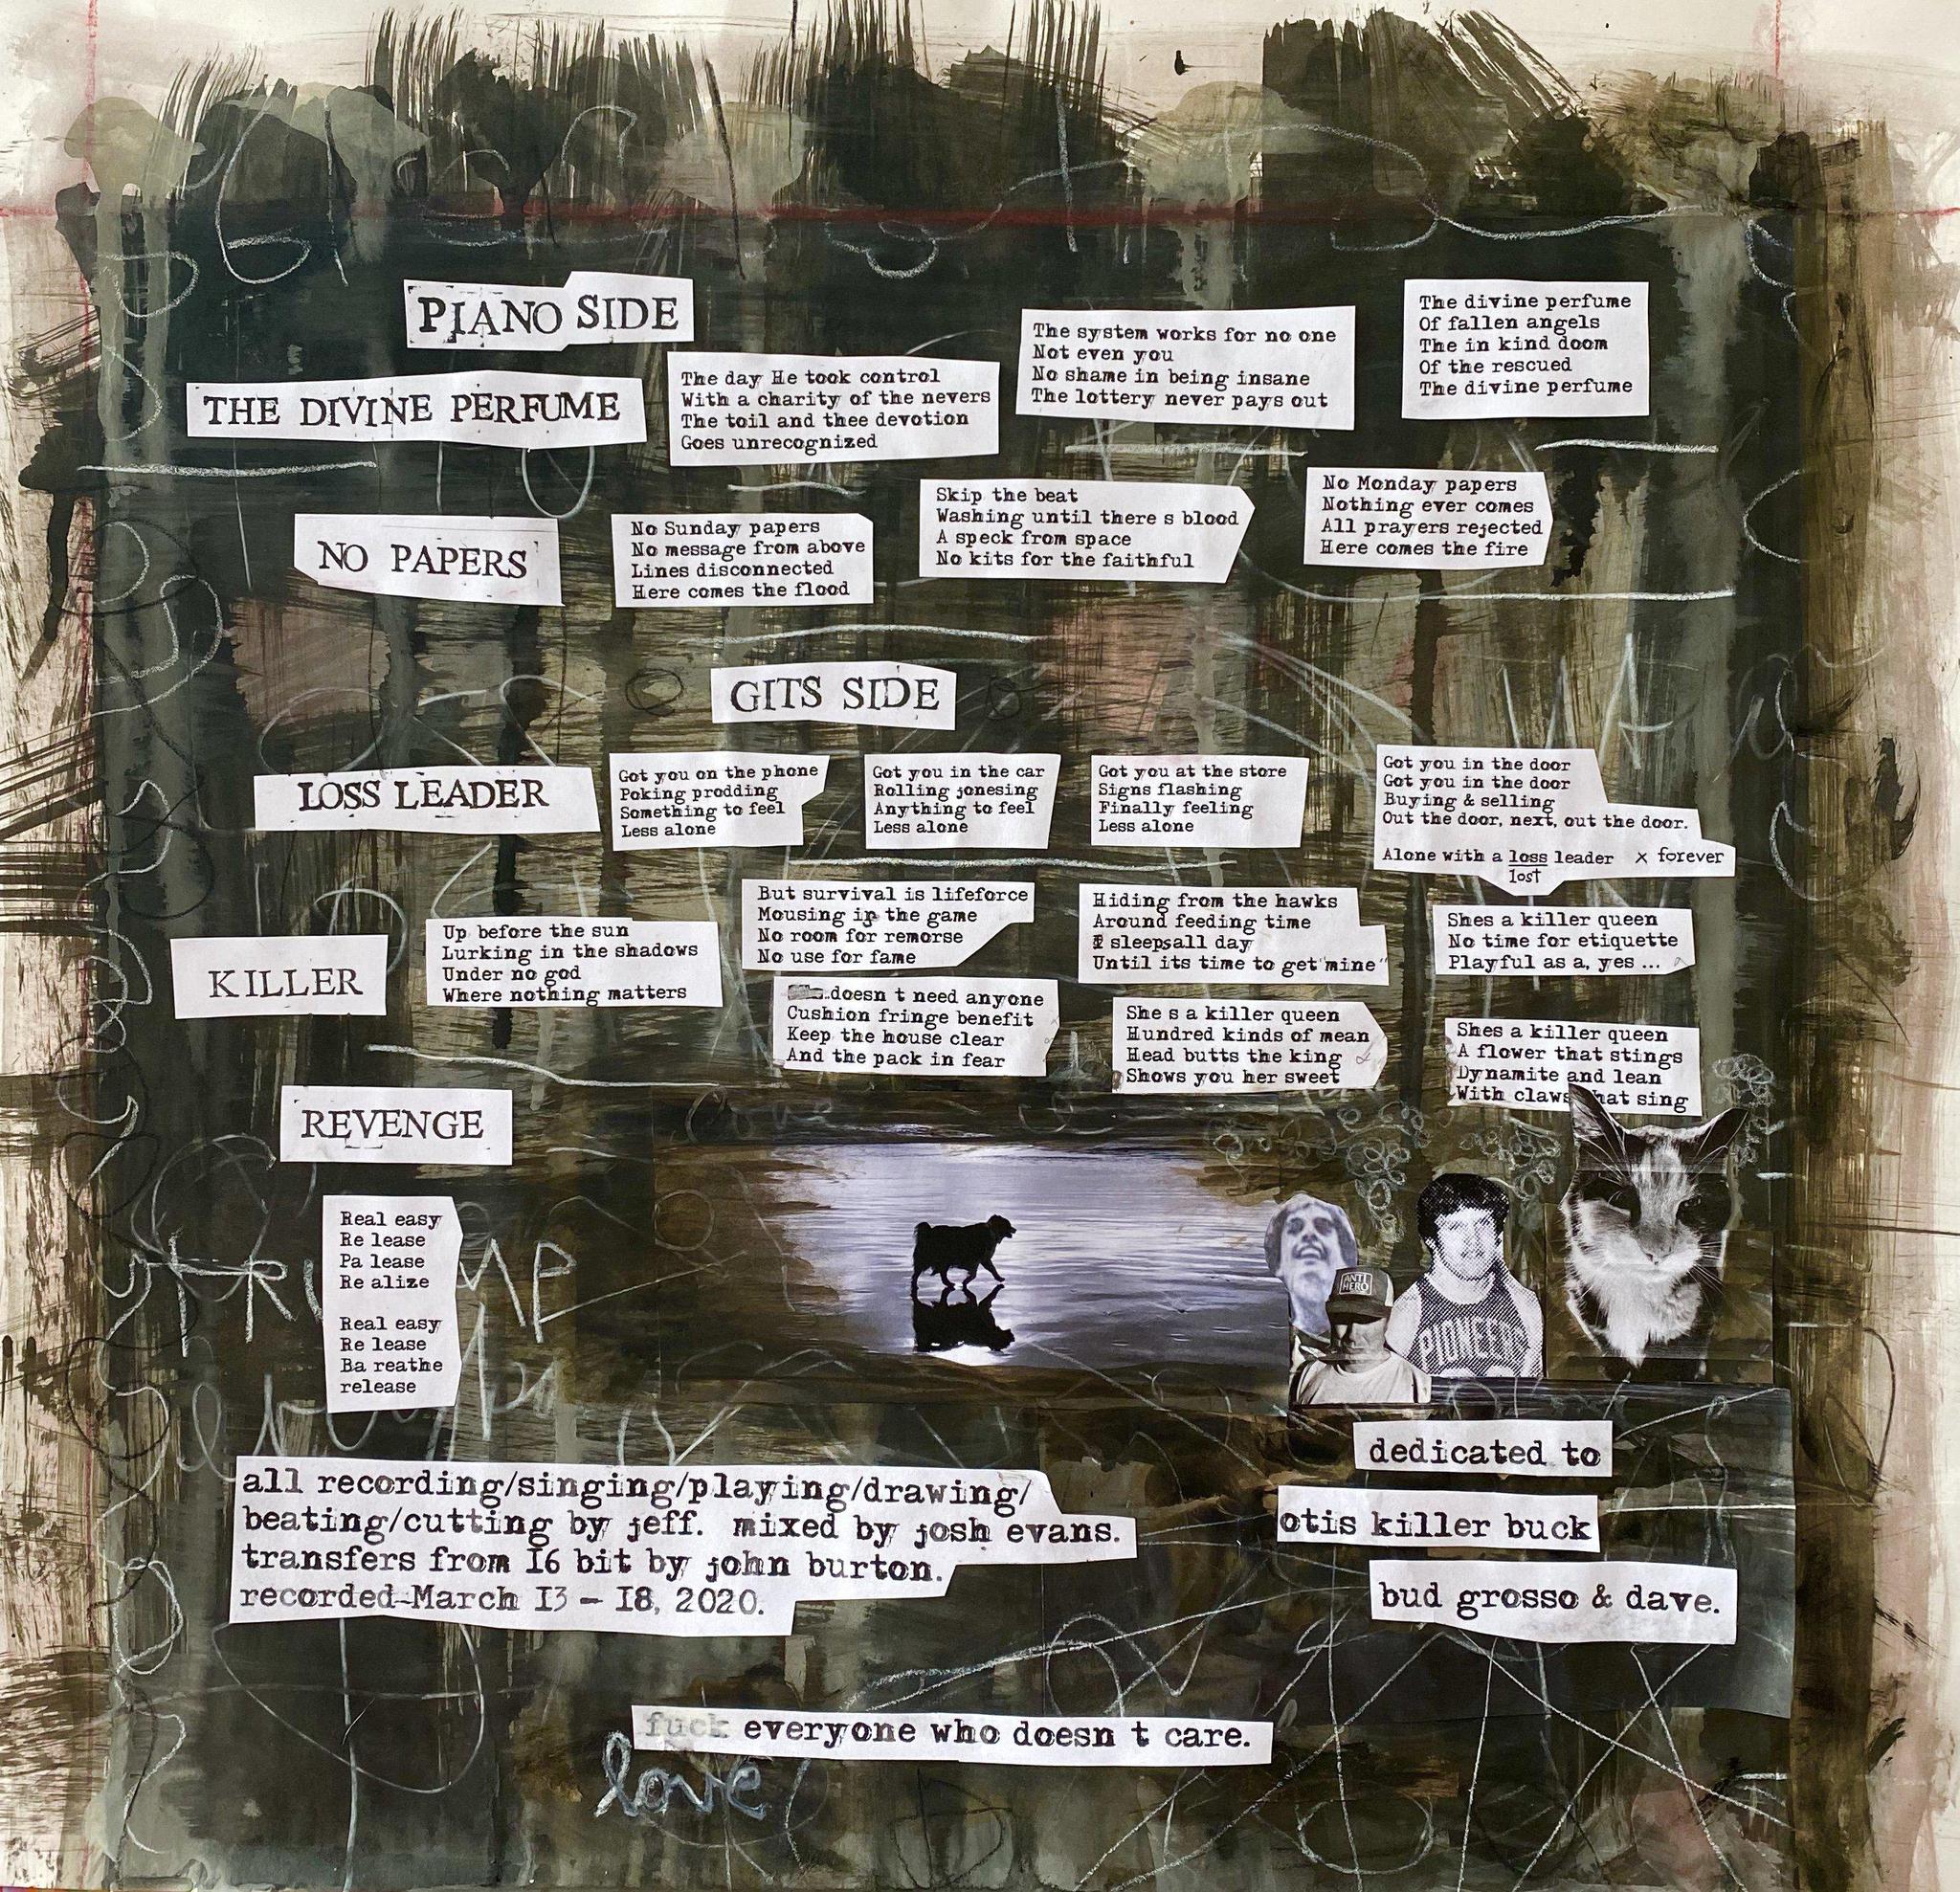 PIANO SIDE
THE DIVINE PERFUME
The day He took control
With a charity of the nevers
The toil and thee devotion
Goes unrecognized
The system works for no one
Not even you
No shame in being insane
The lottery never pays out
The divine perfume
Of fallen angels
The in kind doom
Of the rescued
The divine perfume
NO PAPERS
No Sunday papers
No message from above
Lines disconnected
Here comes the flood
Skip the beat
Washing until there s blood
A speck from space
No kits for the faithful
No Monday papers
Nothing ever comes
All prayers rejected
Here comes the fire
GITS SIDE
LOSS LEADER
Got you on the phone
Poking prodding
Something to feel
Less alone
Got you in the car
Rolling jonesing
Anything to feel
Less alone
Got you at the store
Signs flashing
Finally feeling
Less alone
Got you in the door
Got you in the door
Buying & selling
Out the door, next, out the door.
Alone with a loss leader x forever
lost
KILLER
Up before the sun
Lurking in the shadows
Under no god
Where nothing matters
But survival is lifeforce
Mousing in the game
No room for remorse
No use for fame
Hiding from the hawks
Around feeding time
I sleepsall day
Until its time to get"mine"
Shes a killer queen
No time for etiquette
Playful as a, yes ...
doesn t need anyone
Cushion fringe benefit
Keep the house clear
And the pack in fear
She s a killer queen
Hundred kinds of mean
Head butts the king
Shows you her sweet
Shes a killer queen
A flower that stings
Dynamite and lean
With claws hat sing
REVENGE
Real easy
Re lease
Pa lease
Re alize
Real easy
Re lease
Ba reathe
release
ANTI
HERO
PIONEERS
dedicated to
otis killer buck
bud grosso & dave.
all recording/singing/playing/drawing/
beating/cutting by jeff. mixed by josh evans.
transfers from I6 bit by john burton.
recorded March I3 - I8, 2020.
fuck everyone who doesn t care.
love